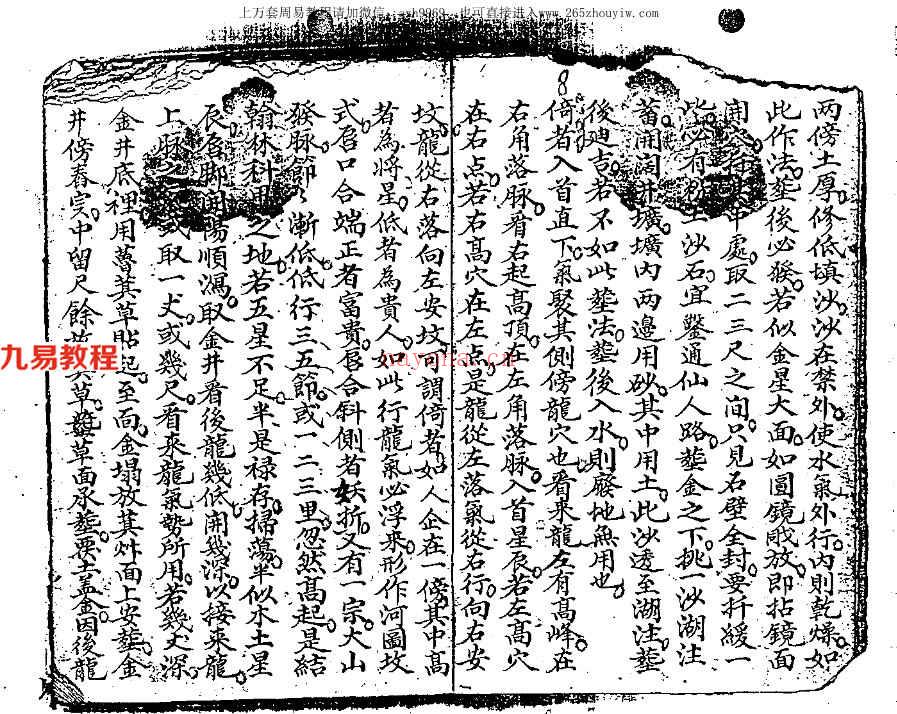 上万套周易教程请加微信 也可直接进入www.265zhouyiw.com
两傍土厚修低填沙沙在禁外使水氣外行内則乾燥如
此作法塟後必發若似金星大面如圓鏡敞放即拈鏡面
開 中處取二三尺之間只見石壁全封要扦緩一
必有 沙石宜鑿通仙人路塟金之下挑一沙湖注
蓄開阔井壙壙内两邊用砂其中用土此沙透至湖注塟
後廸吉若不如此塟法塟後入水則廢地魚用也
倚者入首直下氣聚其側傍龍穴也看来龍左有高峰在
右角落脉看右起高頂在左角落脉入首星辰若左高穴
在右点若右高穴在左点是龍從左落氣從右行向右安
坟龍從右落向左安坟謂倚者如人企在一傍其中高
者為將星低者為貴人如此行龍氣必浮来形作河圖坟
式唇口合端正者富貴唇合斜側者妖折又有一宗大山
發脉節々漸低低行三五節或一二三里忽然高起是結
翰林科甲之地若五星不足半是禄存掃蕩半似水土星
辰 脚開陽順濕取金井看後龍幾低開幾深以接来龍
上脉之 取一丈或幾尺看来龍氣勢所用若幾丈深
金井底裡用蔓萁草貼 至面金塌放萁 面上安塟金
井傍舂实中留尺餘 萁草 草面承塟要土盖金因後龍
九易教程